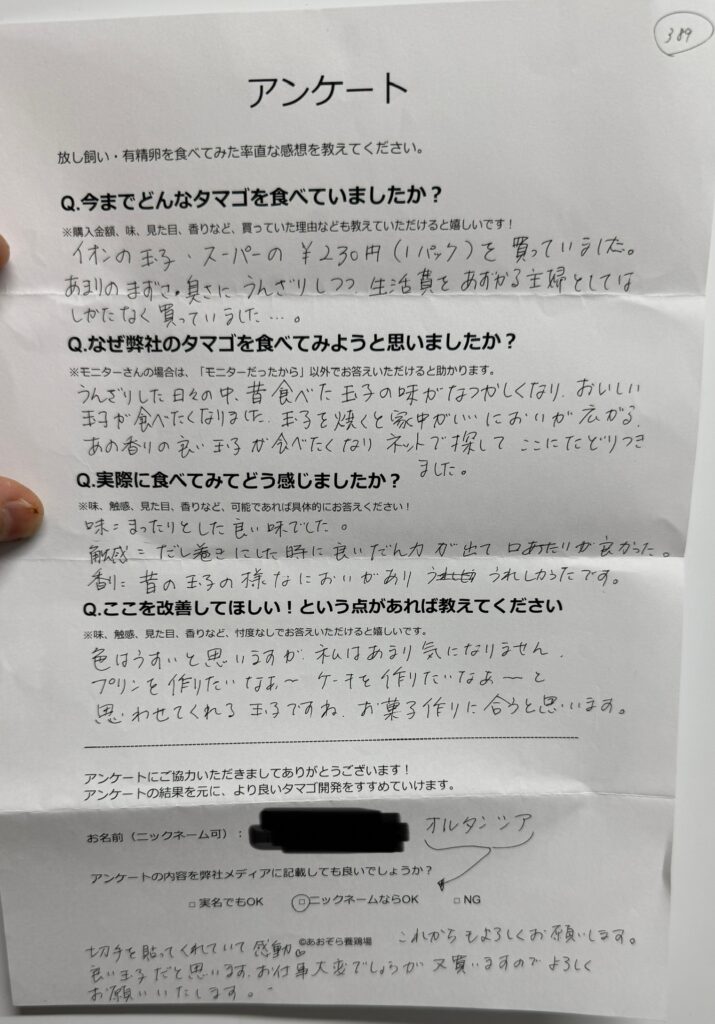 389
アンケート
放し飼い・有精卵を食べてみた率直な感想を教えてください。
Q.今までどんなタマゴを食べていましたか？
※購入金額、味、見た目、香りなど、買っていた理由なども教えていただけると嬉しいです！
イオンの玉子・スーパーの￥230円(1パック)を買っていました。
あまりのまずさ。臭さにうんざりしつつ、生活費をあずかる主婦としては
しかたなく買っていました…。
Q.なぜ弊社のタマゴを食べてみようと思いましたか？
※モニターさんの場合は、「モニターだったから」以外でお答えいただけると助かります。
うんざりした日々の中、昔食べた玉子の味がなつかしくなり、おいしい
玉子が食べたくなりました。玉子を焼くと家中がいいにおいが広がる、
あの香りの良い玉子が食べたくなりネットで探してここにたどりつき
ました。
Q.実際に食べてみてどう感じましたか？
※味、触感、見た目、香りなど、可能であれば具体的にお答えください！
味＝まったりとした良い味でした。
触感＝だし巻きにした時に良いだん力が出て口あたりが良かった。
香り＝昔の玉子の様なにおいがあり うれしかったです。
Q.ここを改善してほしい！という点があれば教えてください
※味、触感、見た目、香りなど、忖度なしでお答えいただけると嬉しいです。
色はうすいと思いますが、私はあまり気になりません。
プリンを作りたいなぁ〜ケーキを作りたいなぁ〜と
思わせてくれる玉子ですね、お菓子作りに合うと思います。
アンケートにご協力いただきましてありがとうございます！
アンケートの結果を元に、より良いタマゴ開発をすすめていけます。
お名前（ニックネーム可）： オルタンシア
アンケートの内容を弊社メディアに記載しても良いでしょうか？
□実名でもOK □ニックネームならOK □NG
©あおぞら養鶏場 これからもよろしくお願いします。
切手を貼ってくれていて感動
良い玉子だと思います、お仕事大変でしょうが又買いますのでよろしく
お願いいたします。